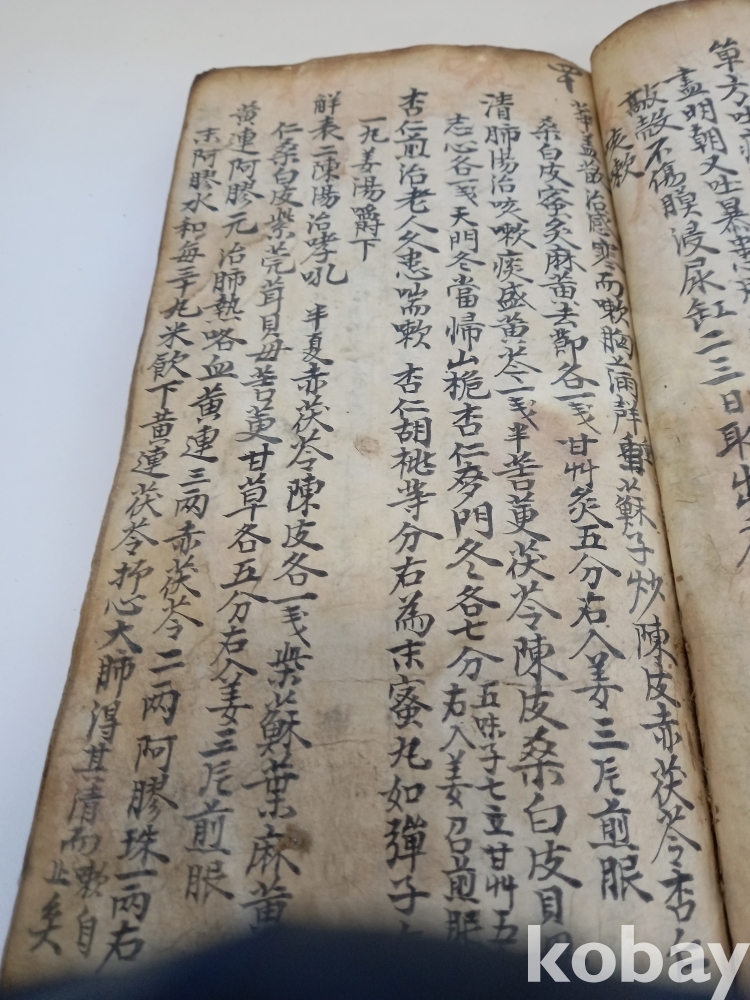 單方吐
盡明朝又吐暴患
敲殼不傷膜浸尿缸二三日取出
咳嗽
華蓋散治感寒而嗽胸滿聲重蘇子炒陳皮赤茯苓杏仁
桑白皮蜜炙麻黃去節各一戔甘艸炙五分右入姜三片煎服
清肺湯治咳嗽痰盛黃芩一戔半苦莄茯苓陳皮桑白皮貝
志心各一戔天門冬當帰山梔杏仁麥門冬各七分五味子七立甘艸五
右入姜召煎服
杏仁煎治老人久患喘嗽 杏仁胡桃等分右為末蜜丸如彈子
一丸姜湯嚼下
解表二陳湯治哮吼 半夏赤茯苓陳皮各一戔柴蘇葉麻黃
仁桑白皮紫莞茸貝母苦莄甘草各五分右入姜三片煎服
黃連阿膠元治肺熱咯血黃連三两赤茯苓二两阿膠珠一两右
末阿膠水和每三十丸米飮下黃連茯苓抑心火肺得其清而嗽自
止矣
kobay